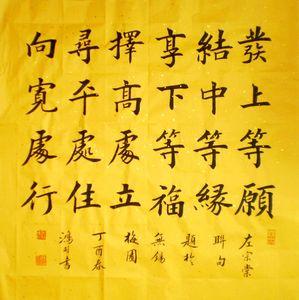 發上等願
結中等緣
享下等福
擇高處立
尋平處住
向寬處行
左宗棠
聯句
題於
無錫
梅園
丁酉春